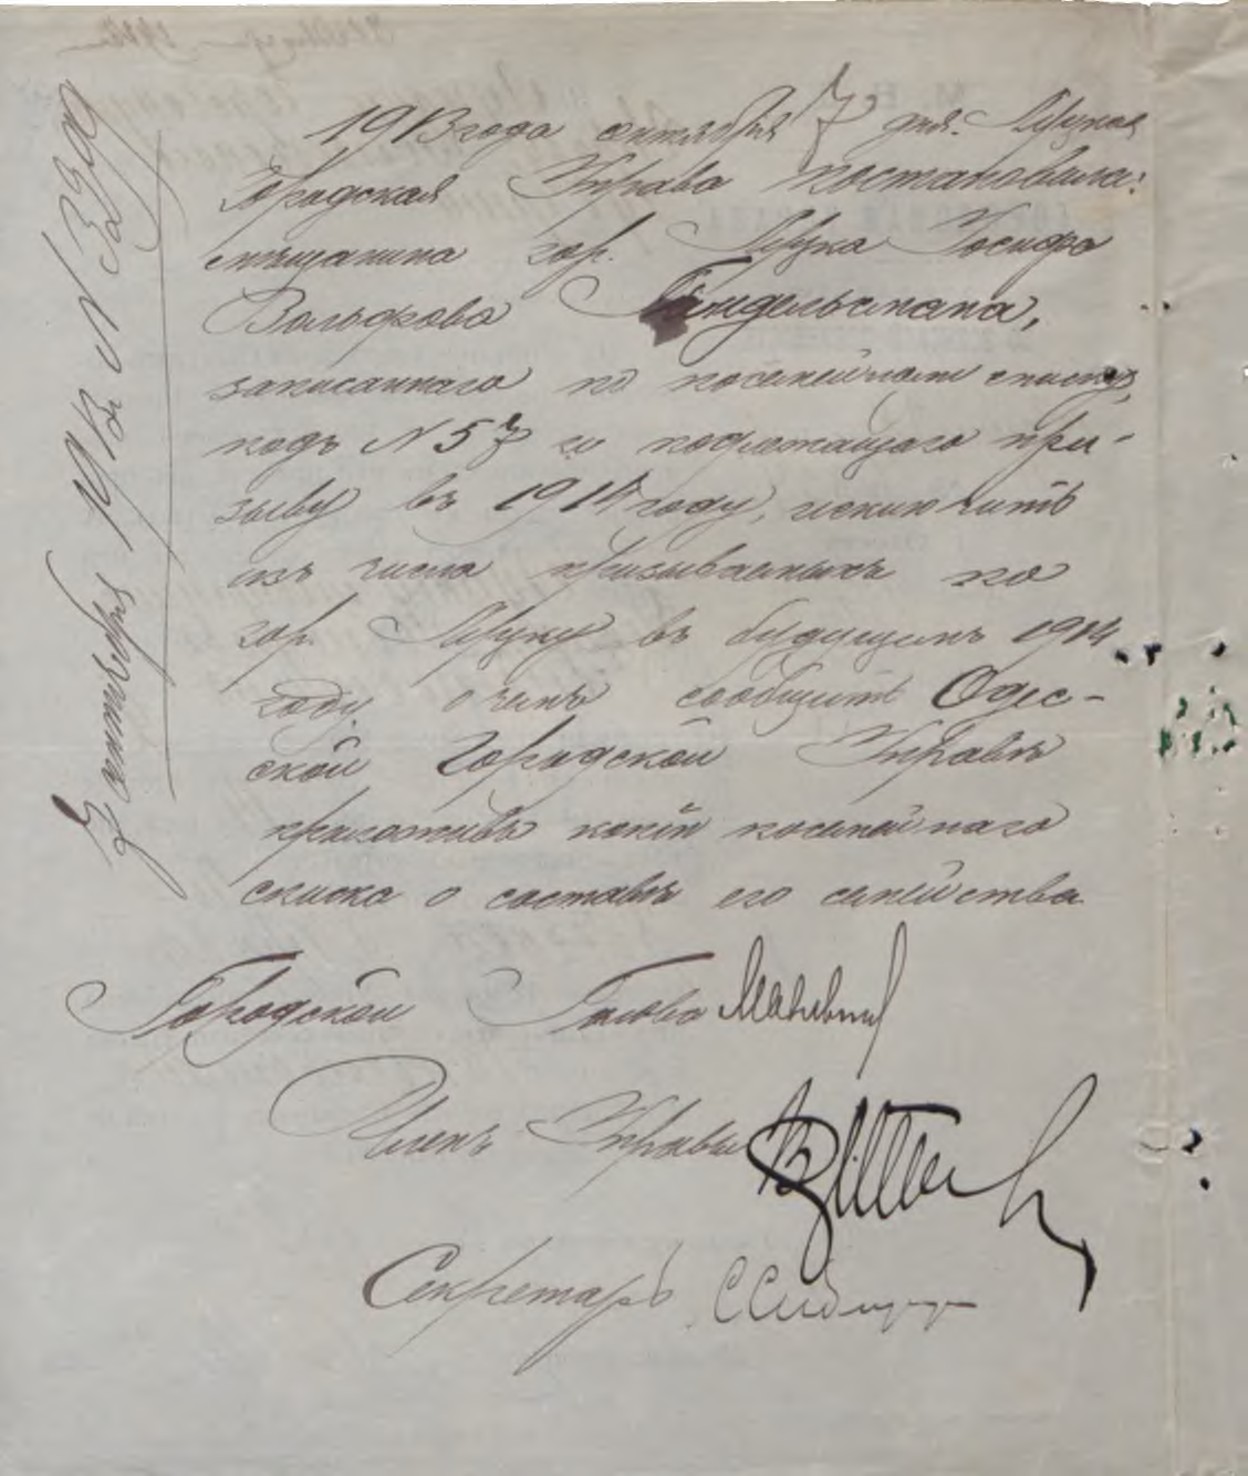 1913 года сентября 7 дня. Луцкая
Городская Управа постановила:
мещанина гор. Луцка Иосифа
Вольфова Гиндельсмана,
записанного по посемейном списку,
подъ N 57 и подлежащаго при-
зыву въ 1914 году, исключить
изъ числа призываемыхъ по
гор. Луцку въ будущемъ 1914
году, о чемъ сообщить Одес-
ской Городской Управѣ
приложивъ копiи посемейнаго
списка о составѣ его семейства
Городской Голова
Членъ Управы
Секретарь
7 сентября 1913 г. N